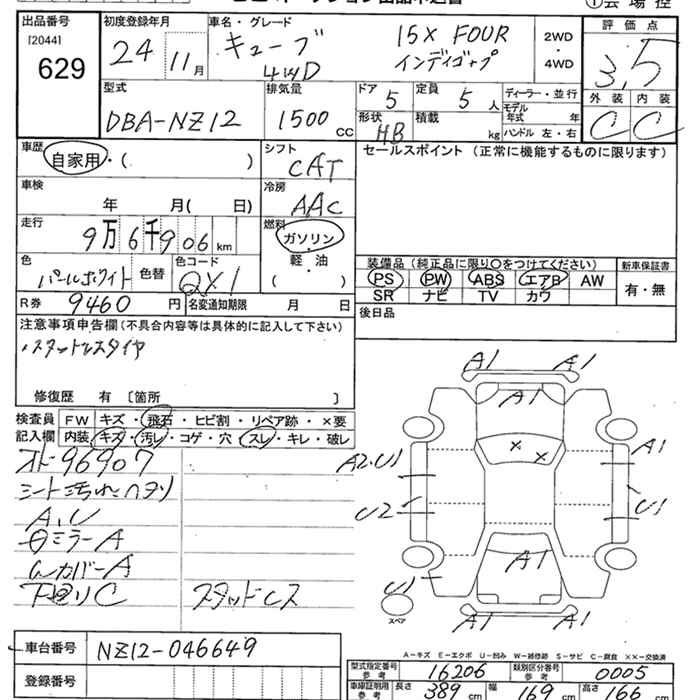 ①会場控
出品番号 初度登録年月 車名・グレード 評価点
[2044] 24年 11月 キューブ 15X FOUR 2WD・4WD 3.5
629 4WD インディゴ+プ
外装 内装
C C
型式 排気量 ドア 5 定員 5人 ディーラー・並行
DBA-NZ12 1500 CC 形状 HB 積載 kg モデル年式 年
ハンドル 左・右
車歴 自家用・( ) シフト CAT セールスポイント (正常に機能するものに限ります)
車検 年 月( 日) 冷房 AAC
走行 9万6千906km 燃料 ガソリン・軽・油 ( )
色 パールホワイト 色替 色コード QX1
装備品 (純正品に限り○をつけてください) 新車保証書
PS PW ABS エアB AW 有・無
SR ナビ TV カワ
R券 9460円 名変通知期限 月 日
後日品
注意事項申告欄(不具合内容等は具体的に記入して下さい)
スタットレスタイヤ
修復歴 有 〔箇所 〕
検査員 FW キズ・飛石・ヒビ割・リペア跡・×要
記入欄 内装 キズ・汚レ・コゲ・穴・スレ・キレ・破レ
オド96907
シート汚れヘタリ
A、U
ミラーA
カバーA
下廻りC スタッドレス
A1 A1
A1
A2・U1 A1
U2 U1
A1
U1
A1 A1
スペア
A-キズ E-エクボ U-凹み W-補修跡 S-サビ C-腐食 ××-交換済
車台番号 NZ12-046649
登録番号
型式指定番号 参考 16206 類別区分番号 参考 0005
車庫証明用 参考 長さ 389cm 幅 169cm 高さ 166cm